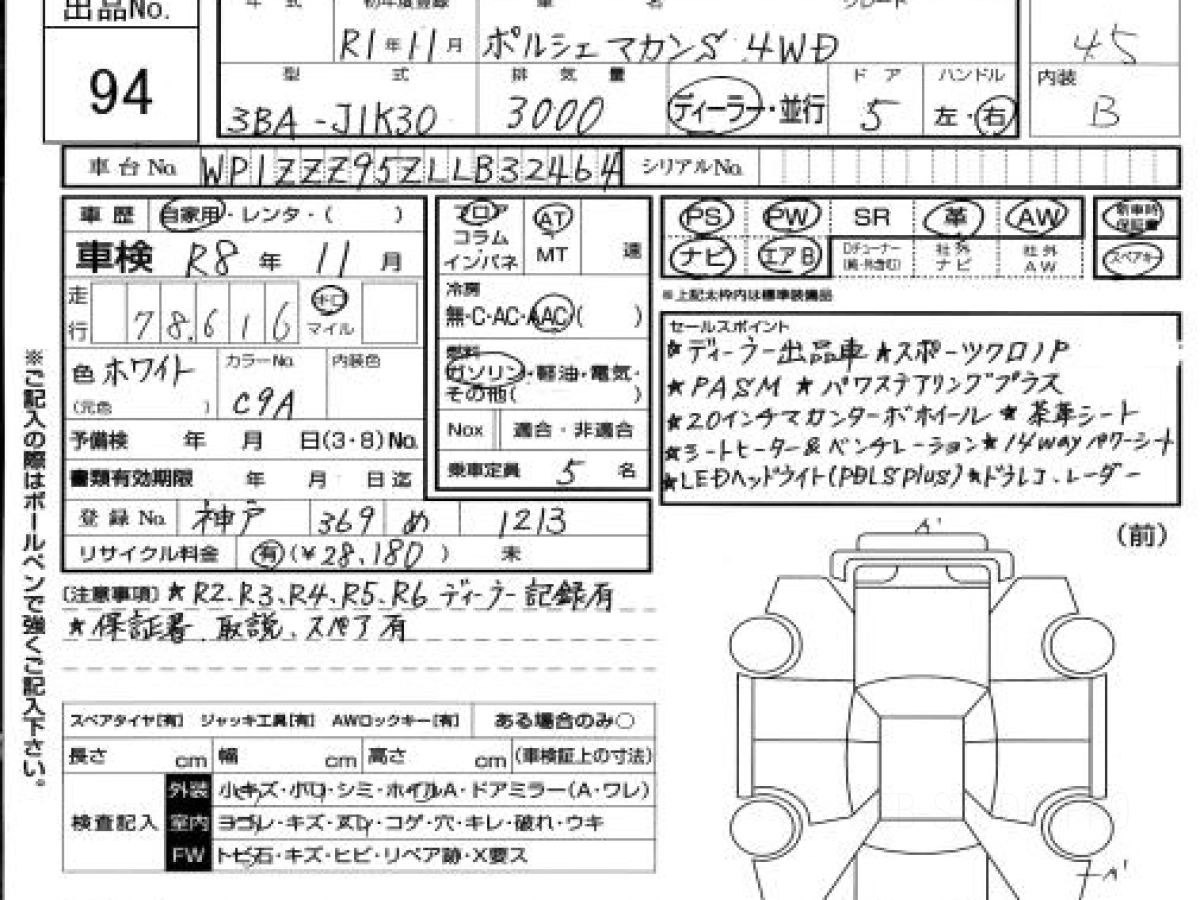 出品No.
94
年 式 初年度登録 車 名 グレード
R1年11月 ポルシェ マカンS 4WD
4.5
型 式 排 気 量 ドア ハンドル 内装
3BA-J1K30 3000 ディーラー・並行 5 左・右 B
車台No. WP1ZZZ95ZLLB32464 シリアルNo.
車歴 自家用・レンタ・( )
車検 R8年11月
走行 78,616 キロ マイル
色 ホワイト カラーNo. C9A 内装色
(元色 )
予備検 年 月 日(3・8)No.
書類有効期限 年 月 日迄
登録No. 神戸 369 め 1213
リサイクル料金 有(¥28,180) 未
フロア・コラム・インパネ AT MT 速
冷房
無・C・AC・AAC( )
燃料
ガソリン・軽油・電気・
その他( )
Nox 適合・非適合
乗車定員 5 名
PS PW SR 革 AW 新車時保証書
ナビ エアB Dチューナー 社外ナビ 社外AW スペアキー
※上記太枠内は標準装備品
セールスポイント
★ディーラー出品車★スポーツクロノP
★PASM ★パワステアリングプラス
★20インチマカンターボホイール ★茶革シート
★シートヒーター&ベンチレーション★14wayパワーシート
★LEDヘッドライト(PDLS plus)★ドラレコ、レーダー
[注意事項]★R2、R3、R4、R5、R6 ディーラー記録有
★保証書、取説、スペア有
スペアタイヤ[有] ジャッキ工具[有] AWロックキー[有] ある場合のみ○
長さ cm 幅 cm 高さ cm (車検証上の寸法)
検査記入
外装 小キズ・ボコ・シミ・ホイールA・ドアミラー(A・ワレ)
室内 ヨゴレ・キズ・スレ・コゲ・穴・キレ・破れ・ウキ
FW トビ石・キズ・ヒビ・リペア跡・X要ス
(前)
A'
A'
※ご記入の際はボールペンで強くご記入下さい。